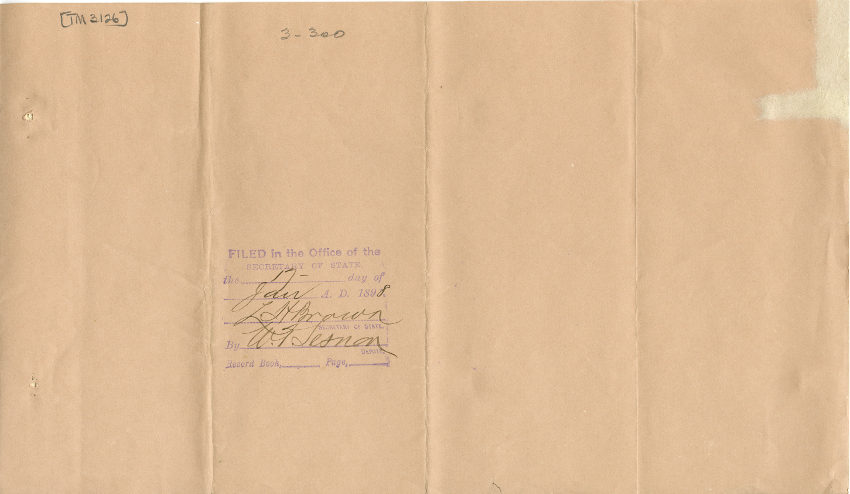 [TM 3126]
3-300
FILED in the Office of the
SECRETARY OF STATE,
the 17 day of
Jan A. D. 1898.
L H Brown
SECRETARY OF STATE.
By W. T. Sesnon
DEPUTY.
Record Book, Page,